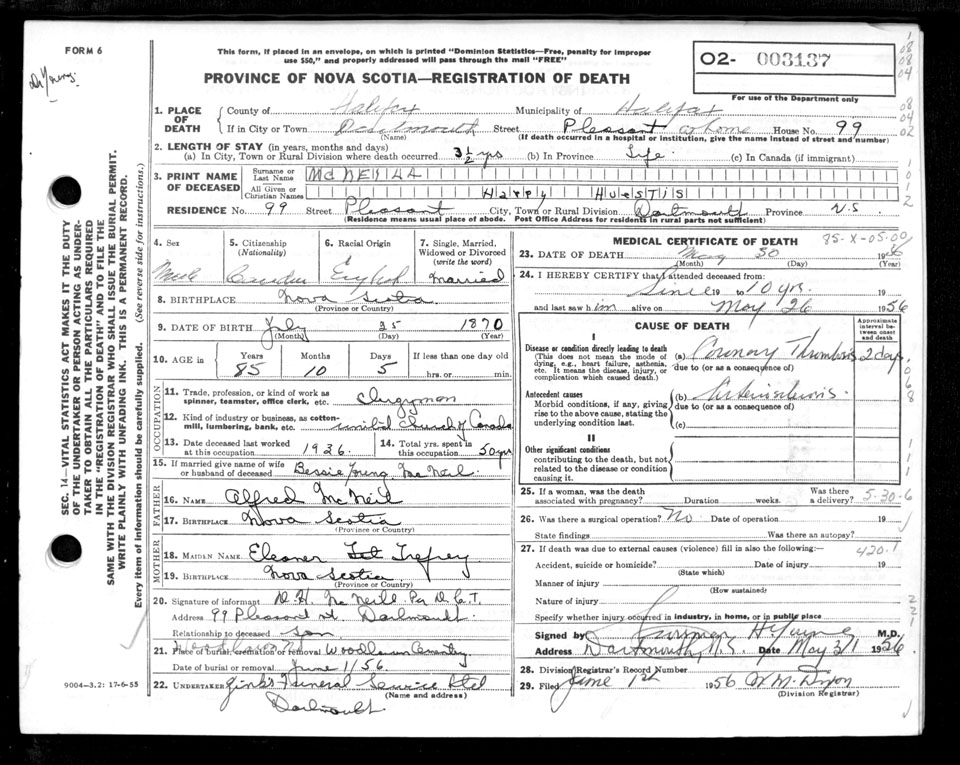 FORM 6
This form, if placed in an envelope, on which is printed "Dominion Statistics—Free, penalty for improper
use $50," and properly addressed will pass through the mail "FREE"
PROVINCE OF NOVA SCOTIA—REGISTRATION OF DEATH
02- 003137
For use of the Department only
1. PLACE OF DEATH
County of Halifax Municipality of Halifax
If in City or Town Dartmouth Street Pleasant at home House No. 99
(Name) (If death occurred in a hospital or institution, give the name instead of street and number)
2. LENGTH OF STAY (in years, months and days)
(a) In City, Town or Rural Division where death occurred 3½ yrs (b) In Province Life (c) In Canada (if immigrant)
3. PRINT NAME OF DECEASED
Surname or Last Name
All Given or Christian Names Harry Huestis
RESIDENCE No. 99 Street Pleasant City, Town or Rural Division Dartmouth Province N.S.
(Residence means usual place of abode. Post Office Address for residents in rural parts not sufficient)
4. Sex Male
5. Citizenship (Nationality)
6. Racial Origin
7. Single, Married, Widowed or Divorced (write the word) Married
8. BIRTHPLACE Nova Scotia
(Province or Country)
9. DATE OF BIRTH July 25 1870
(Month) (Day) (Year)
10. AGE in Years Months Days If less than one day old
85 10 5 hrs. or min.
OCCUPATION
11. Trade, profession, or kind of work as spinner, teamster, office clerk, etc. Clergyman
12. Kind of industry or business, as cotton-mill, lumbering, bank, etc. United Church of Canada
13. Date deceased last worked at this occupation 1936
14. Total yrs. spent in this occupation 50 yrs
15. If married give name of wife or husband of deceased Bessie Young McNeil
FATHER
16. NAME Alfred McNeil
17. BIRTHPLACE Nova Scotia
(Province or Country)
MOTHER
18. MAIDEN NAME Eleanor Trefrey
19. BIRTHPLACE Nova Scotia
(Province or Country)
20. Signature of informant D. H. McNeill Per D.C.T.
Address 99 Pleasant st. Dartmouth
Relationship to deceased son
21. Place of burial, cremation or removal Woodlawn Cemetery
Date of burial or removal June 1/56.
22. UNDERTAKER Funeral Service Ltd
(Name and address)
Dartmouth
9004—3.2: 17-6-55
MEDICAL CERTIFICATE OF DEATH
85-X-05-00
23. DATE OF DEATH May 30 1956
(Month) (Day) (Year)
24. I HEREBY CERTIFY that I attended deceased from:
Since 19 to 10 yrs. 19
and last saw h im alive on May 26 1956
CAUSE OF DEATH
Approximate interval between onset and death
I
Disease or condition directly leading to death
(This does not mean the mode of dying, e.g., heart failure, asthenia, etc. It means the disease, injury, or complication which caused death.)
(a) Coronary Thrombosis 2 days
due to (or as a consequence of)
Antecedent causes
Morbid conditions, if any, giving rise to the above cause, stating the underlying condition last.
(b) Arteriosclerosis
due to (or as a consequence of)
(c)
II
Other significant conditions
contributing to the death, but not related to the disease or condition causing it.
25. If a woman, was the death associated with pregnancy? Duration weeks. Was there a delivery?
5-30-6
26. Was there a surgical operation? No Date of operation 19
State findings Was there an autopsy?
27. If death was due to external causes (violence) fill in also the following:—
420.1
Accident, suicide or homicide? Date of injury 19
(State which)
Manner of injury
(How sustained)
Nature of injury
Specify whether injury occurred in industry, in home, or in public place
Signed by M.D.
Address Dartmouth, N.S. Date May 31 1956
28. Division Registrar's Record Number
29. Filed June 1st 1956
(Division Registrar)
SEC. 14—VITAL STATISTICS ACT MAKES IT THE DUTY
OF THE UNDERTAKER OR PERSON ACTING AS UNDER-
TAKER TO OBTAIN ALL THE PARTICULARS REQUIRED
IN THE "REGISTRATION OF DEATH" AND TO FILE THE
SAME WITH THE DIVISION REGISTRAR WHO SHALL ISSUE THE BURIAL PERMIT.
WRITE PLAINLY WITH UNFADING INK. THIS IS A PERMANENT RECORD.
Every item of information should be carefully supplied. (See reverse side for instructions.)